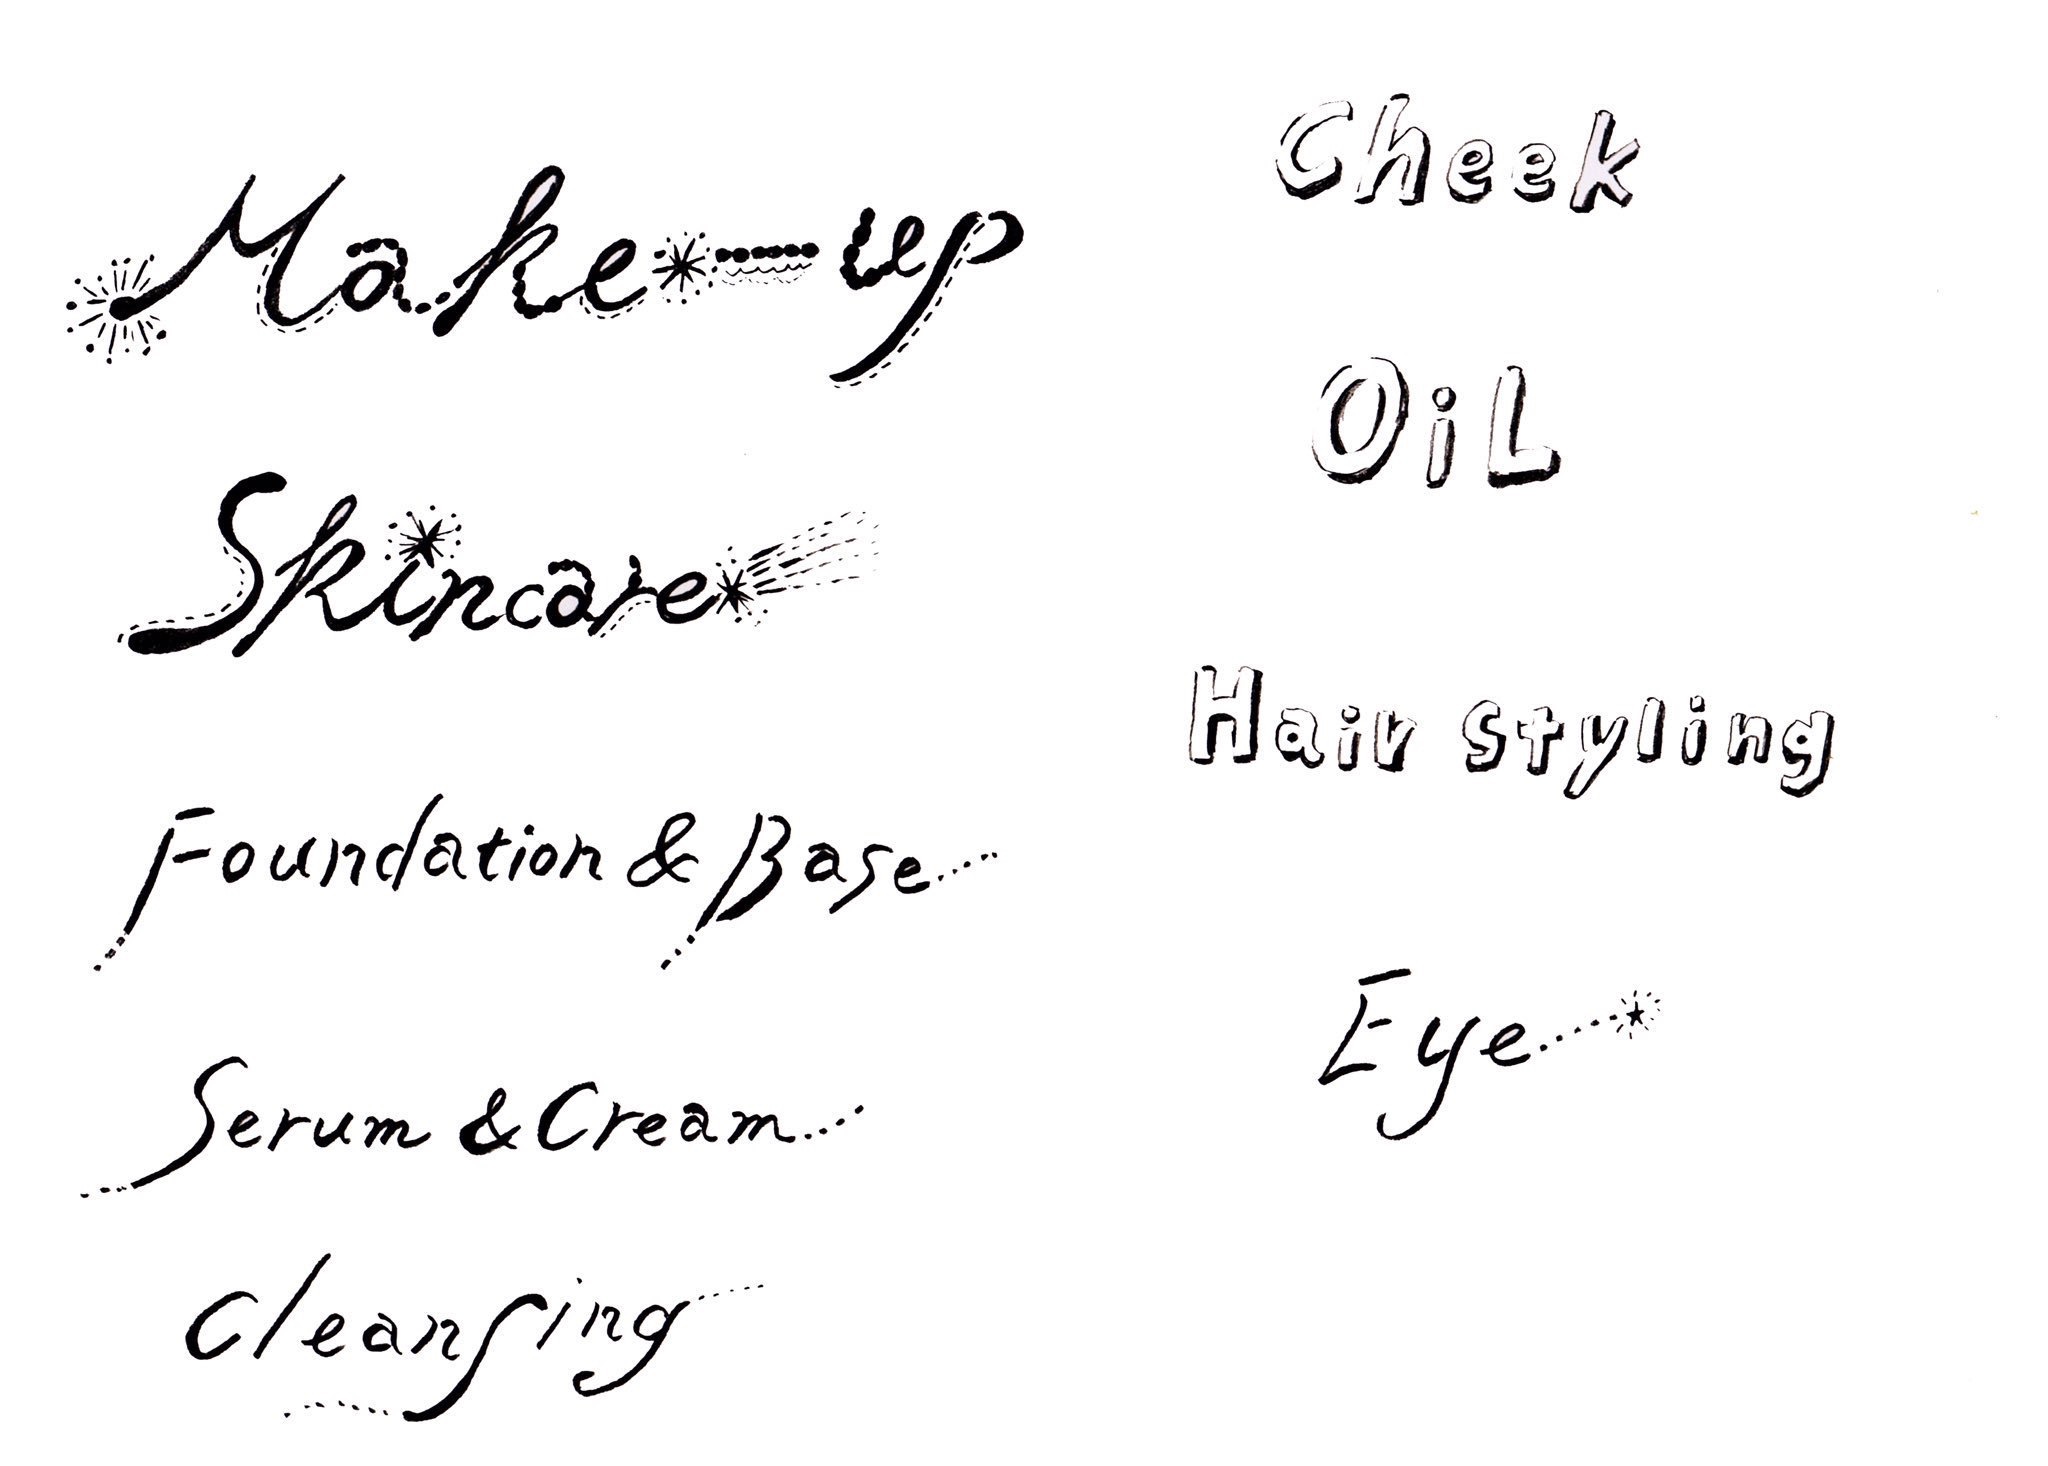 Make-up
Skincare
Foundation & Base
Serum & Cream
cleansing
Cheek
OiL
Hair styling
Eye